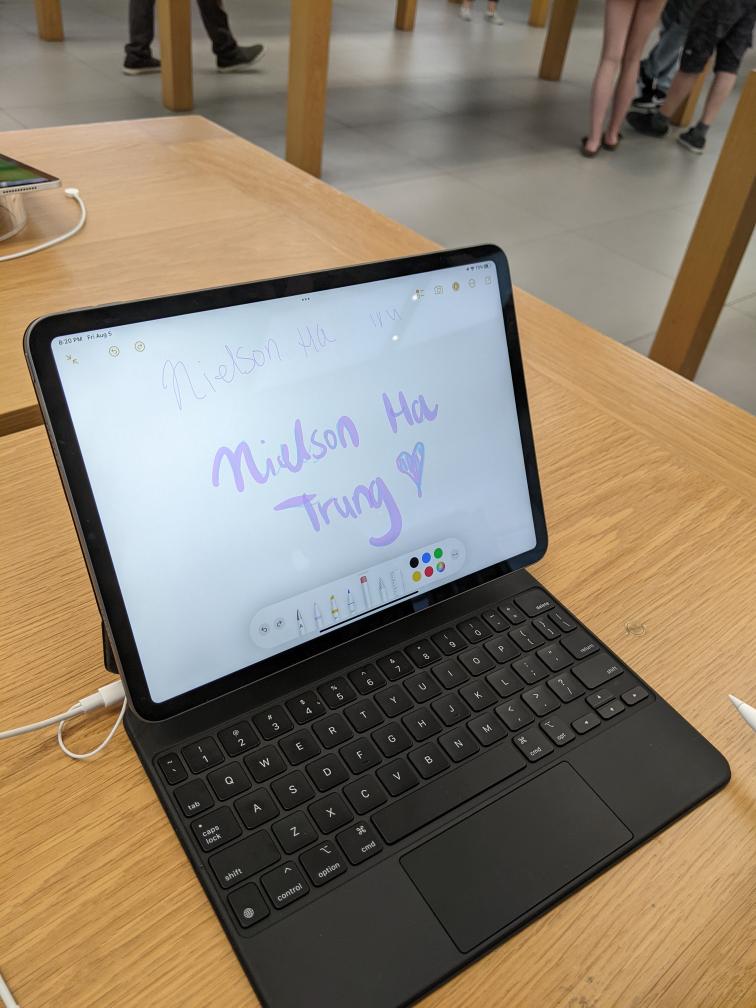 8:20 PM Fri Aug 5
73%
Nielson Ha
Nielson Ha
Trung
delete
~ ! @ # $ % ^ & * ( ) _ +
` 1 2 3 4 5 6 7 8 9 0 - =
tab Q W E R T Y U I O P { [ } ] | \
caps lock A S D F G H J K L : ; " ' return
shift Z X C V B N M < , > . ? / shift
control option cmd cmd opt